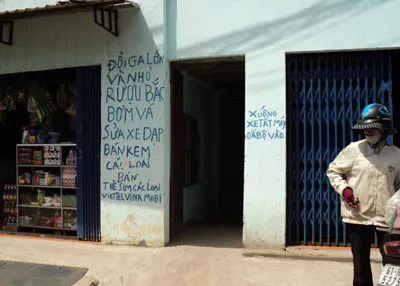 ĐỔI GA LỚN
VÀ NHỎ
RƯỢU BẮC
BƠM VÁ
SỬA XE ĐẠP
BÁN KEM
CÁC LOẠI
BÁN
THẺ SIM CÁC LOẠI
VIETTEL VINA MOBI
XUỐNG
XE TẮT MÁY
DẮB BỘ VÀO